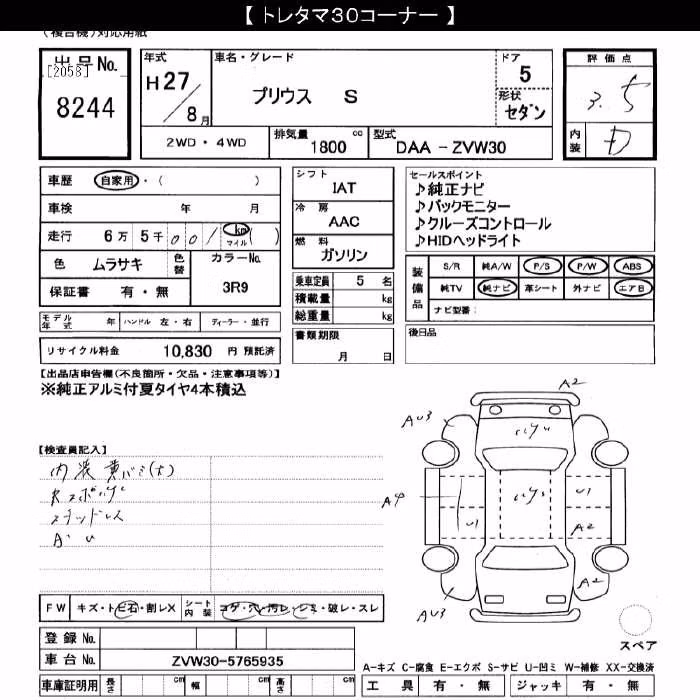 【 トレタマ30コーナー 】
(複合機)対応用紙
出品No.
[2058]
8244
年式
H27/8月
車名・グレード
プリウス S
ドア
5
形状
セダン
評価点
3.5
内装
D
2WD・4WD
排気量 1800 cc
型式 DAA-ZVW30
車歴 自家用・( )
車検 年 月
走行 6万 5千001 km マイル ( )
色 ムラサキ 色替
カラーNo.
3R9
保証書 有・無
モデル年式 年 ハンドル 左・右 ディーラー・並行
リサイクル料金 10,830 円 預託済
シフト
IAT
冷房
AAC
燃料
ガソリン
乗車定員 5 名
積載量 kg
総重量 kg
書類期限
月 日
セールスポイント
♪純正ナビ
♪バックモニター
♪クルーズコントロール
♪HIDヘッドライト
装備品
S/R 純A/W P/S P/W ABS
純TV 純ナビ 革シート 外ナビ エアB
ナビ型番:
後日品
[出品店申告欄(不良箇所・欠品・注意事項等)]
※純正アルミ付夏タイヤ4本積込
[検査員記入]
内装黄バミ(大)
スタッドレス
A・U
A2
AU3
A4
U1
U1
A2
A2
AU3
FW キズ・トビ石・割レX
シート内装 コゲ・穴・汚レ・シミ・破レ・スレ
登録 No.
車台 No. ZVW30-5765935
車庫証明用 長さ cm 幅 cm 高さ cm
スペア
A-キズ C-腐食 E-エクボ S-サビ U-凹ミ W-補修 XX-交換済
工具 有・無 ジャッキ 有・無